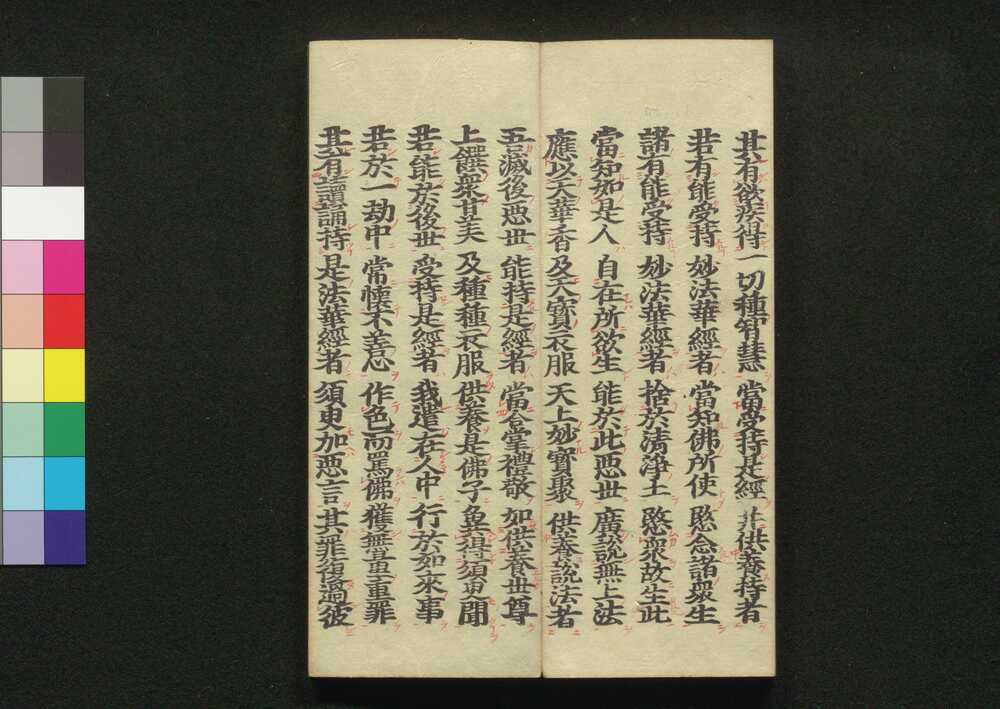 其有欲疾得 一切種智慧 當受持是經 并供養持者
若有能受持 妙法華經者 當知佛所使 愍念諸眾生
諸有能受持 妙法華經者 捨於清淨土 愍眾故生此
當知如是人 自在所欲生 能於此惡世 廣說無上法
應以天華香 及天寶衣服 天上妙寶聚 供養說法者
吾滅後惡世 能持是經者 當合掌禮敬 如供養世尊
上饌眾甘美 及種種衣服 供養是佛子 冀得須臾聞
若能於後世 受持是經者 我遣在人中 行於如來事
若於一劫中 常懷不善心 作色而罵佛 獲無量重罪
其有讀誦持 是法華經者 須臾加惡言 其罪復過彼